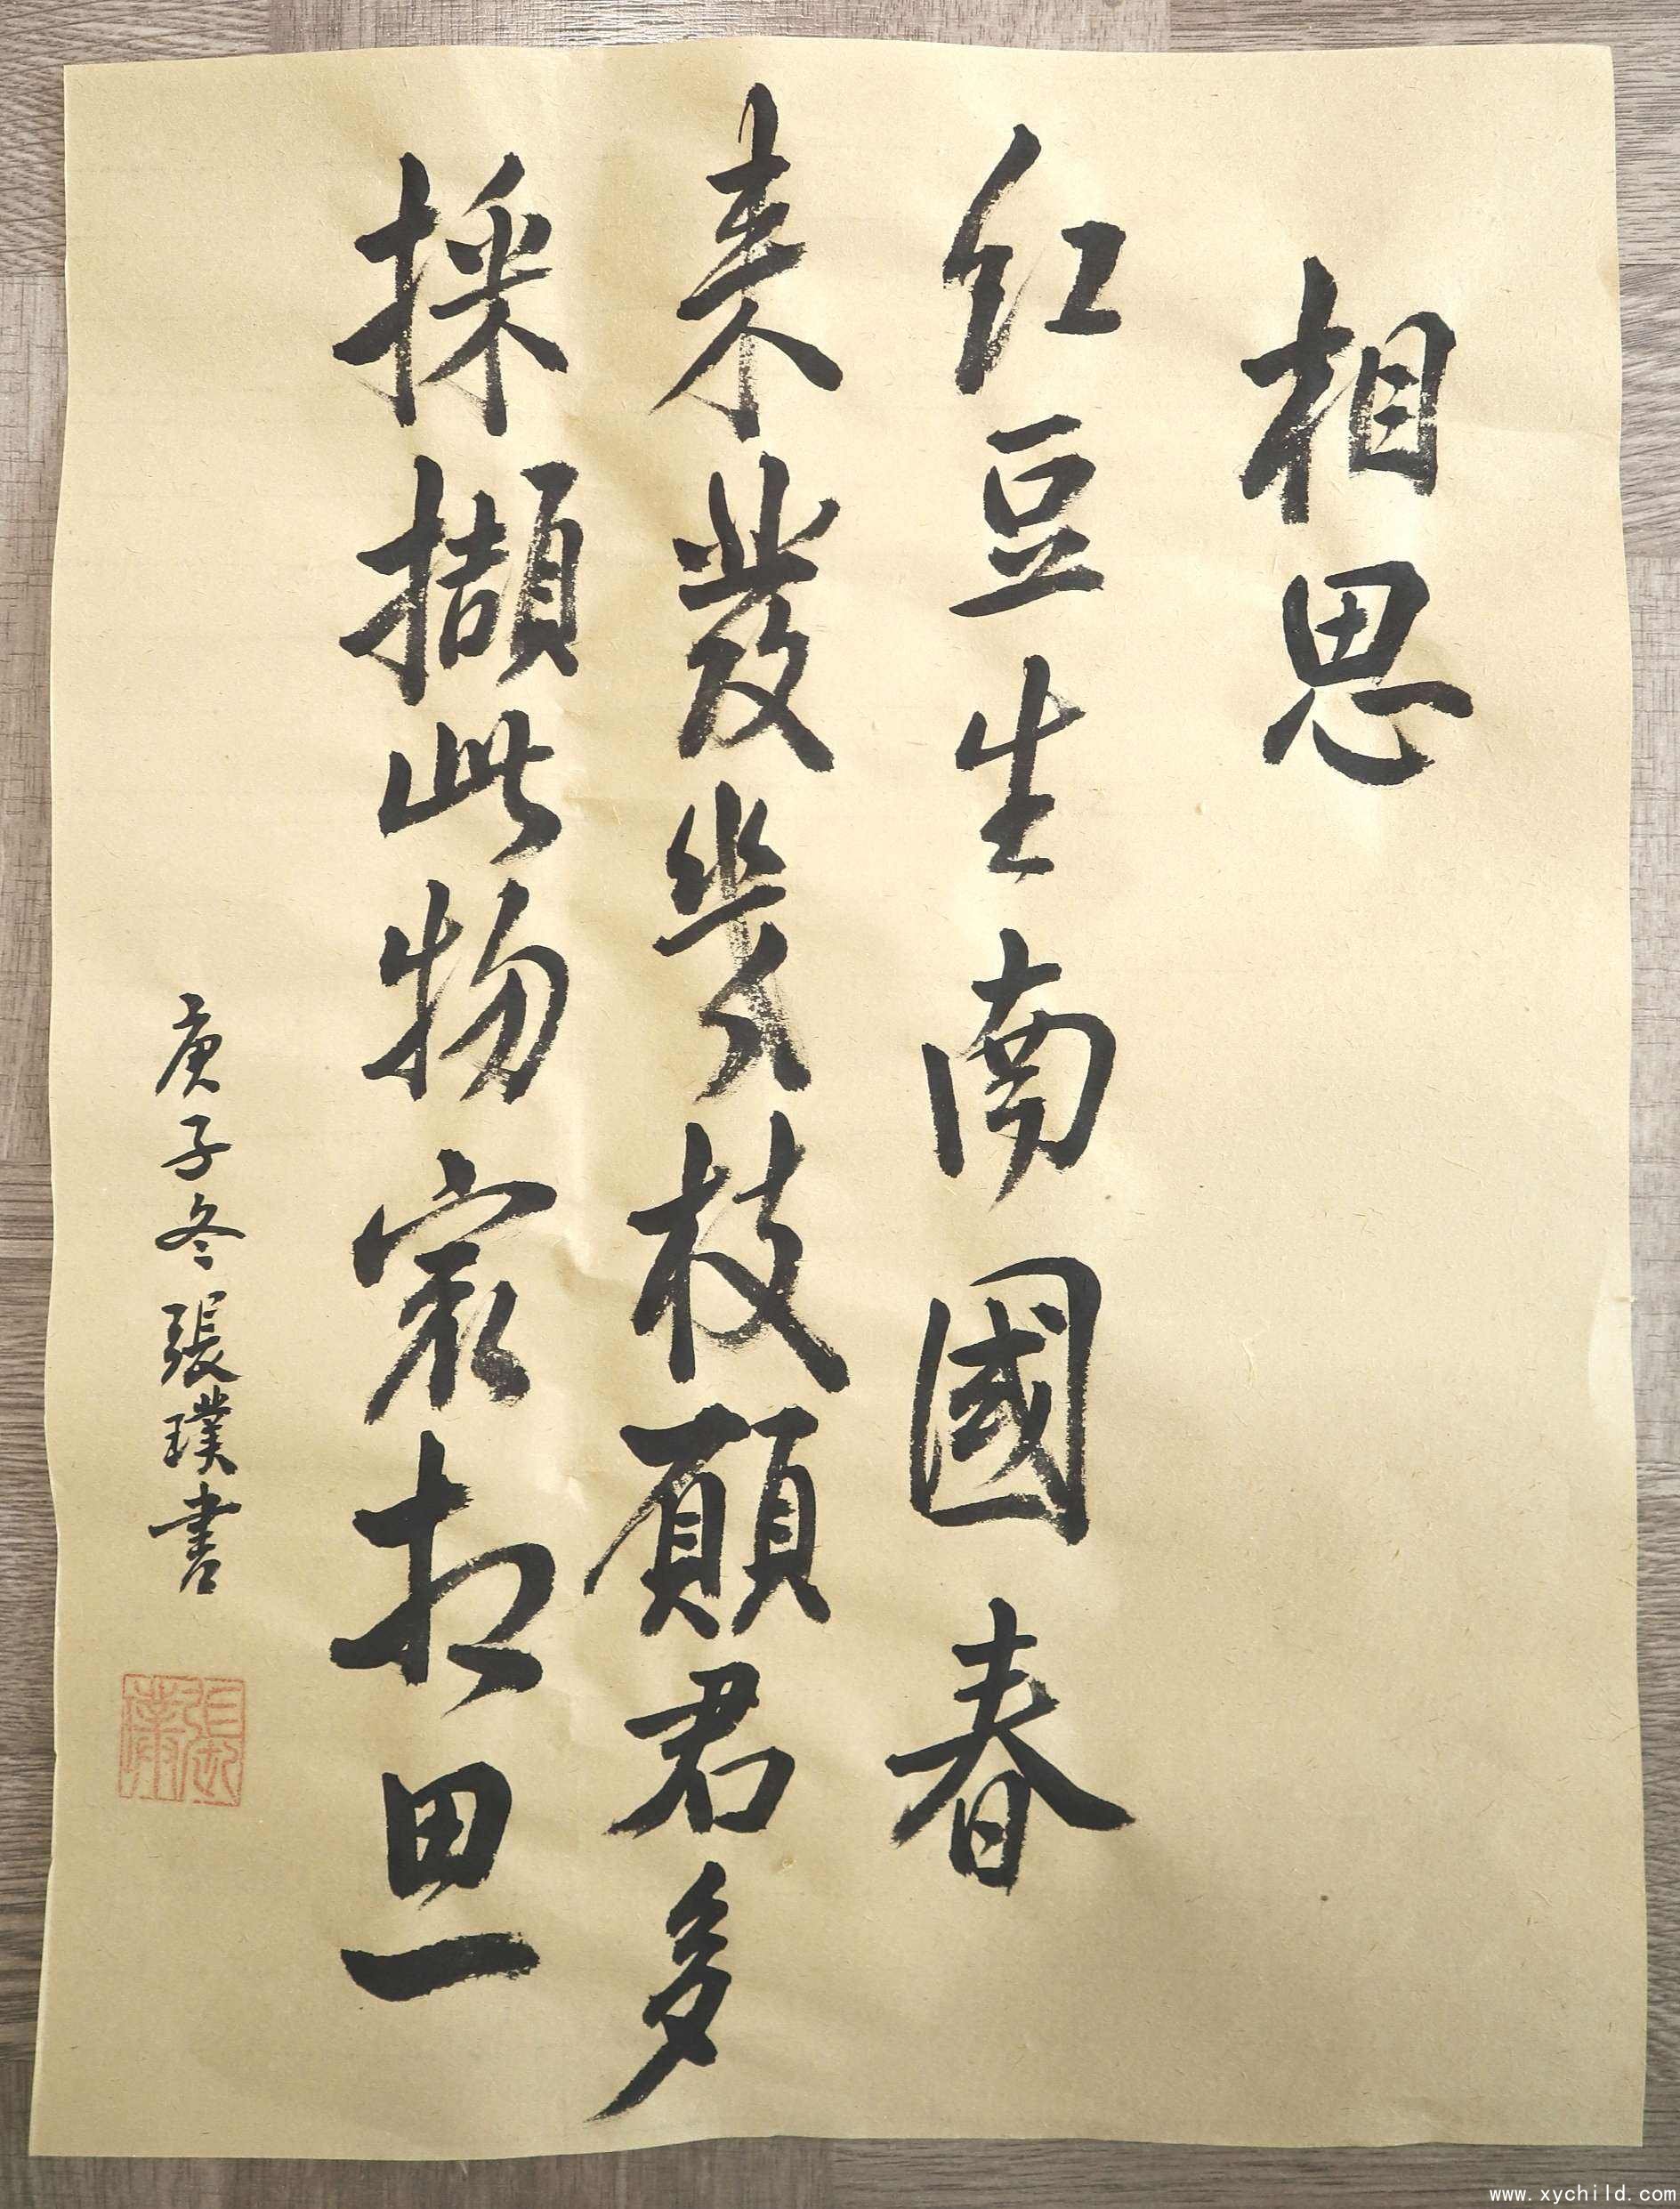 相思
红豆生南國春
来發幾枝願君多
採擷此物最相思
庚子冬張璞書
www.xychild.com